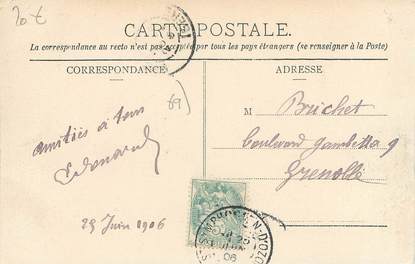 20 €
CARTE POSTALE.
La correspondance au recto n'est pas acceptée par tous les pays étrangers (se renseigner à la Poste)
CORRESPONDANCE
ADRESSE
69
amitiés à tous
Edouard
29 Juin 1906
M Brichet
boulevard Gambetta 9
Grenoble
ST-SYMPHORIEN-D'OZON
06